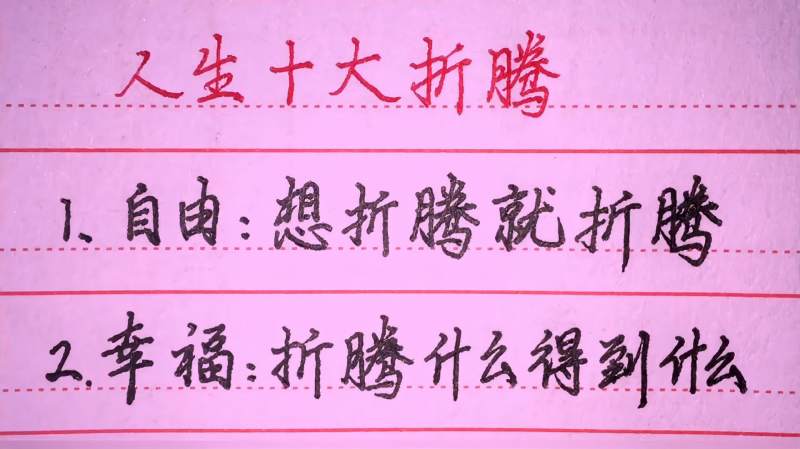 人生十大折腾
1、自由:想折腾就折腾
2.幸福:折腾什么得到什么